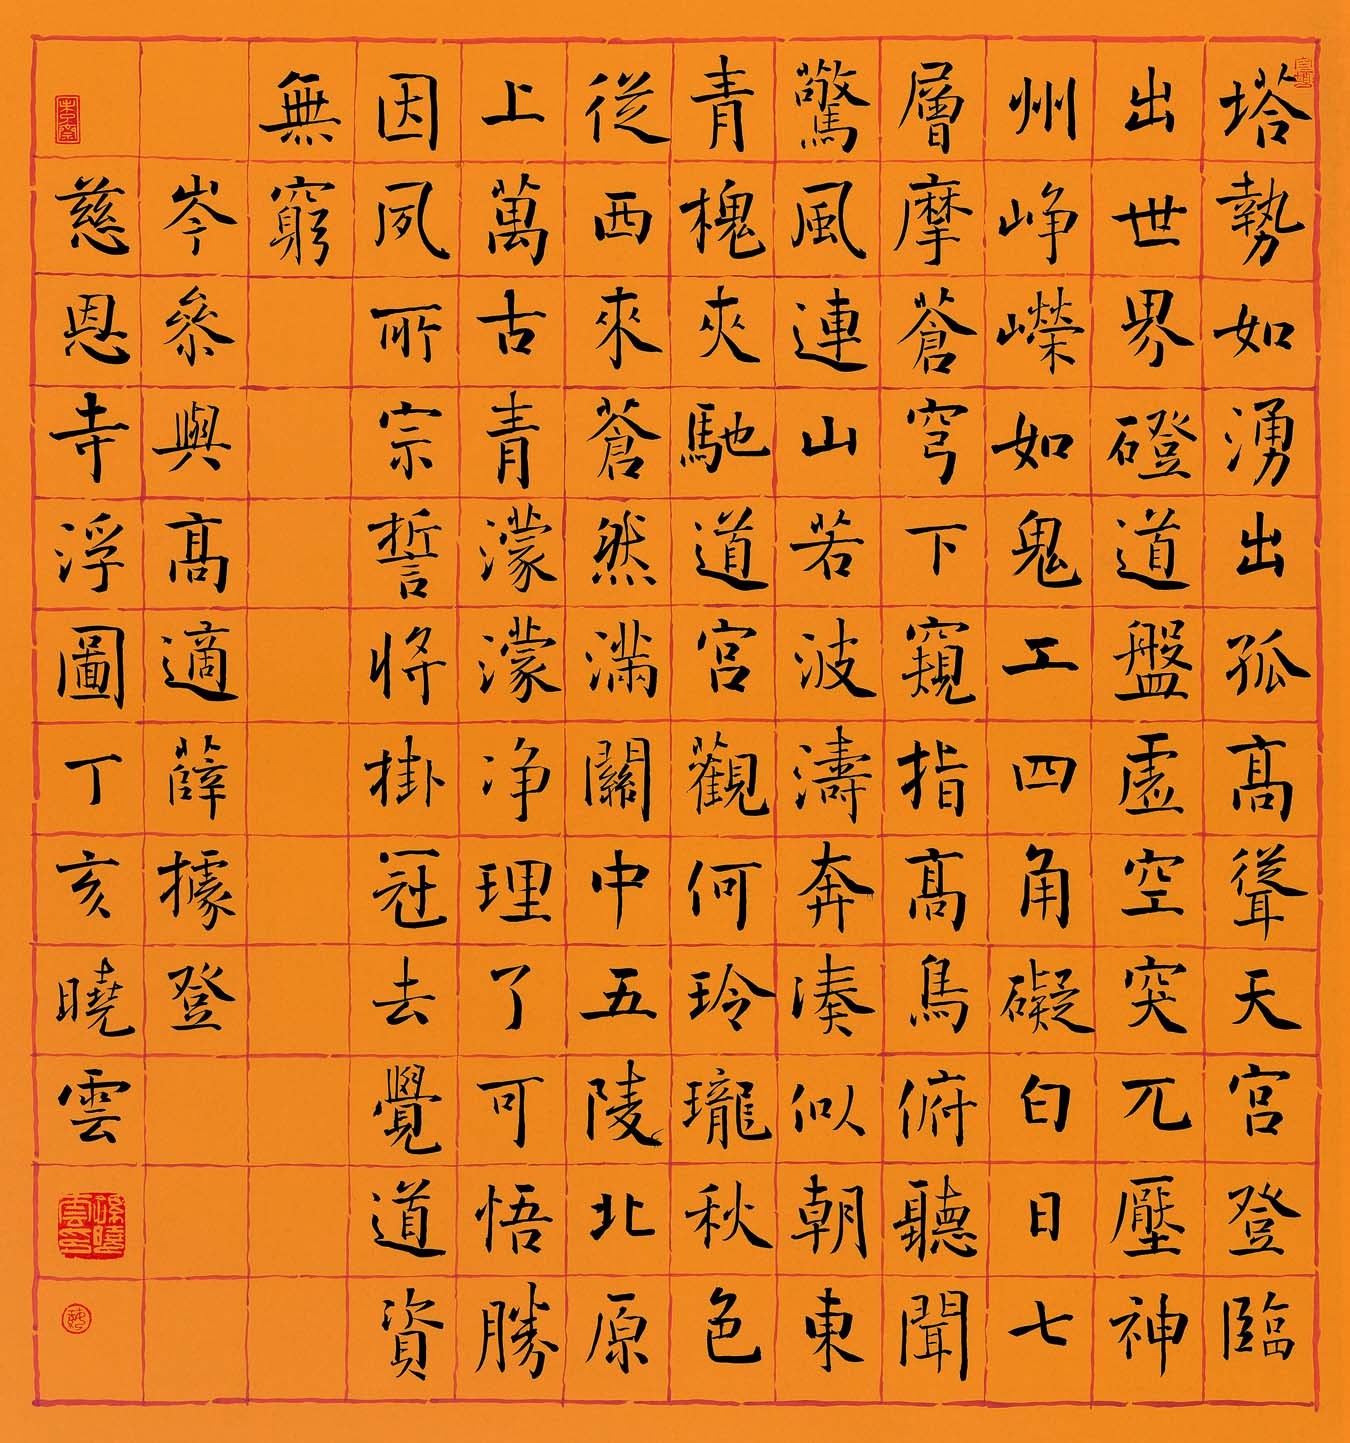 塔勢如湧出孤髙聳天宫登臨
出世界磴道盤虚空突兀壓神
州峥嶸如鬼工四角礙白日七
層摩蒼穹下窺指髙鳥俯聽聞
驚風連山若波濤奔湊似朝東
青槐夾馳道宫觀何玲瓏秋色
從西來蒼然滿關中五陵北原
上萬古青濛濛净理了可悟勝
因夙所宗誓將掛冠去覺道資
無窮
岑參與髙適薛據登
慈恩寺浮圖丁亥曉雲
孫曉雲印